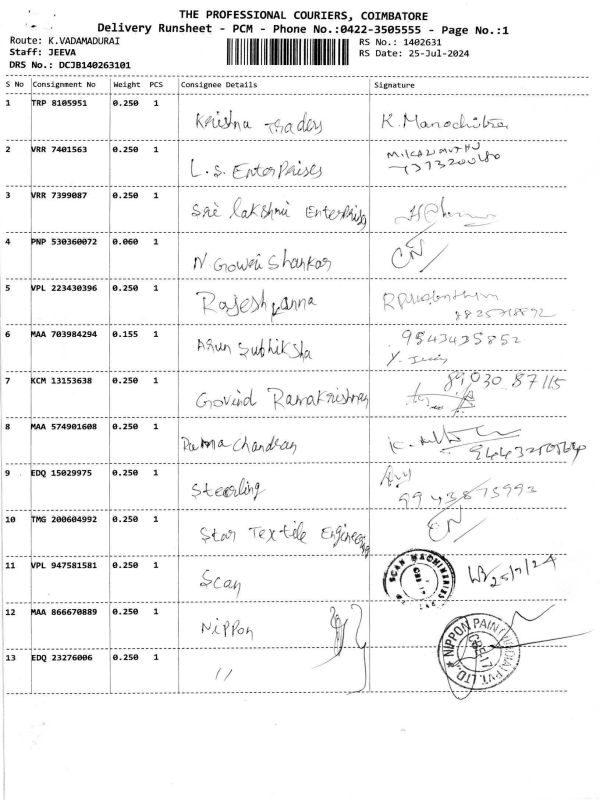 THE PROFESSIONAL COURIERS, COIMBATORE
Delivery Runsheet - PCM - Phone No.:0422-3505555 - Page No.:1
Route: K.VADAMADURAI RS No.: 1402631
Staff: JEEVA RS Date: 25-Jul-2024
DRS No.: DCJB140263101
S No Consignment No Weight PCS Consignee Details Signature
1 TRP 8105951 0.250 1
Krishna Traders
2 VRR 7401563 0.250 1
L.S. Enterprises
3 VRR 7399087 0.250 1
Sri Lakshmi Enterprises
4 PNP 530360072 0.060 1 CN
N Gowri Shankar
5 VPL 223430396 0.250 1
Rajesh
6 MAA 703984294 0.155 1 9543435852
Arun Subhiksha
7 KCM 13153638 0.250 1 89030 87115
Govind Ramakrishnan
8 MAA 574901608 0.250 1
Rama Chandran
9 EDQ 15029975 0.250 1
Steerling 9943875993
10 TMG 200604992 0.250 1 CN
Star Textile Engineering
11 VPL 947581581 0.250 1
Scan SCAN MACHINERIES 25/7/24
12 MAA 866670889 0.250 1
Nippon NIPPON PAINT (INDIA) PVT. LTD.
13 EDQ 23276006 0.250 1
"